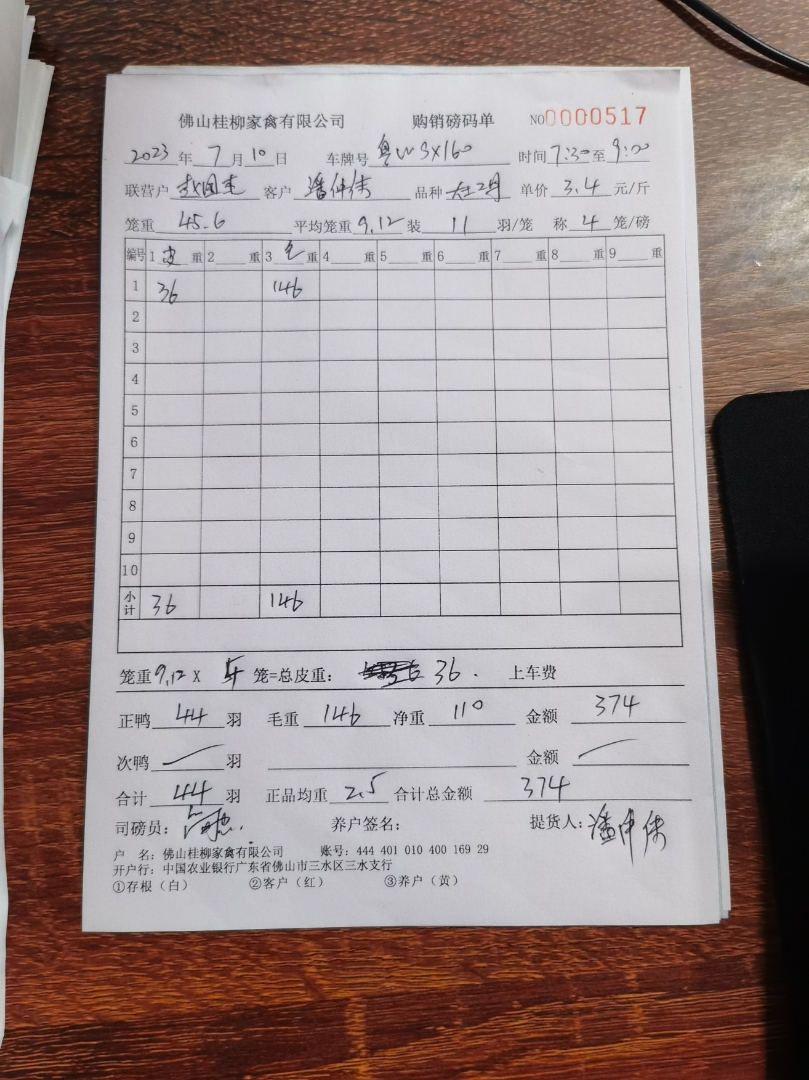 佛山桂柳家禽有限公司 购销磅码单 NO0000517
2023 年 7 月 10 日 车牌号 粤W3X160 时间 7:30 至 9:00
联营户 客户 品种 单价 3.4 元/斤
笼重 45.6 平均笼重 9.12 装 11 羽/笼 称 4 笼/磅
编号 1 皮 重 2 重 3 毛 重 4 重 5 重 6 重 7 重 8 重 9 重
1 36 146
2
3
4
5
6
7
8
9
10
小计 36 146
笼重 9.12 X 笼=总皮重: 36. 上车费
正鸭 44 羽 毛重 146 净重 110 金额 374
次鸭 羽 金额
合计 44 羽 正品均重 2.5 合计总金额 374
司磅员: 养户签名: 提货人:
户 名: 佛山桂柳家禽有限公司 账号: 444 401 010 400 169 29
开户行: 中国农业银行广东省佛山市三水区三水支行
①存根（白） ②客户（红） ③养户（黄）